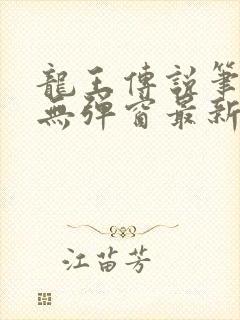 龍王傳說筆
無彈窗最新
江苗芳